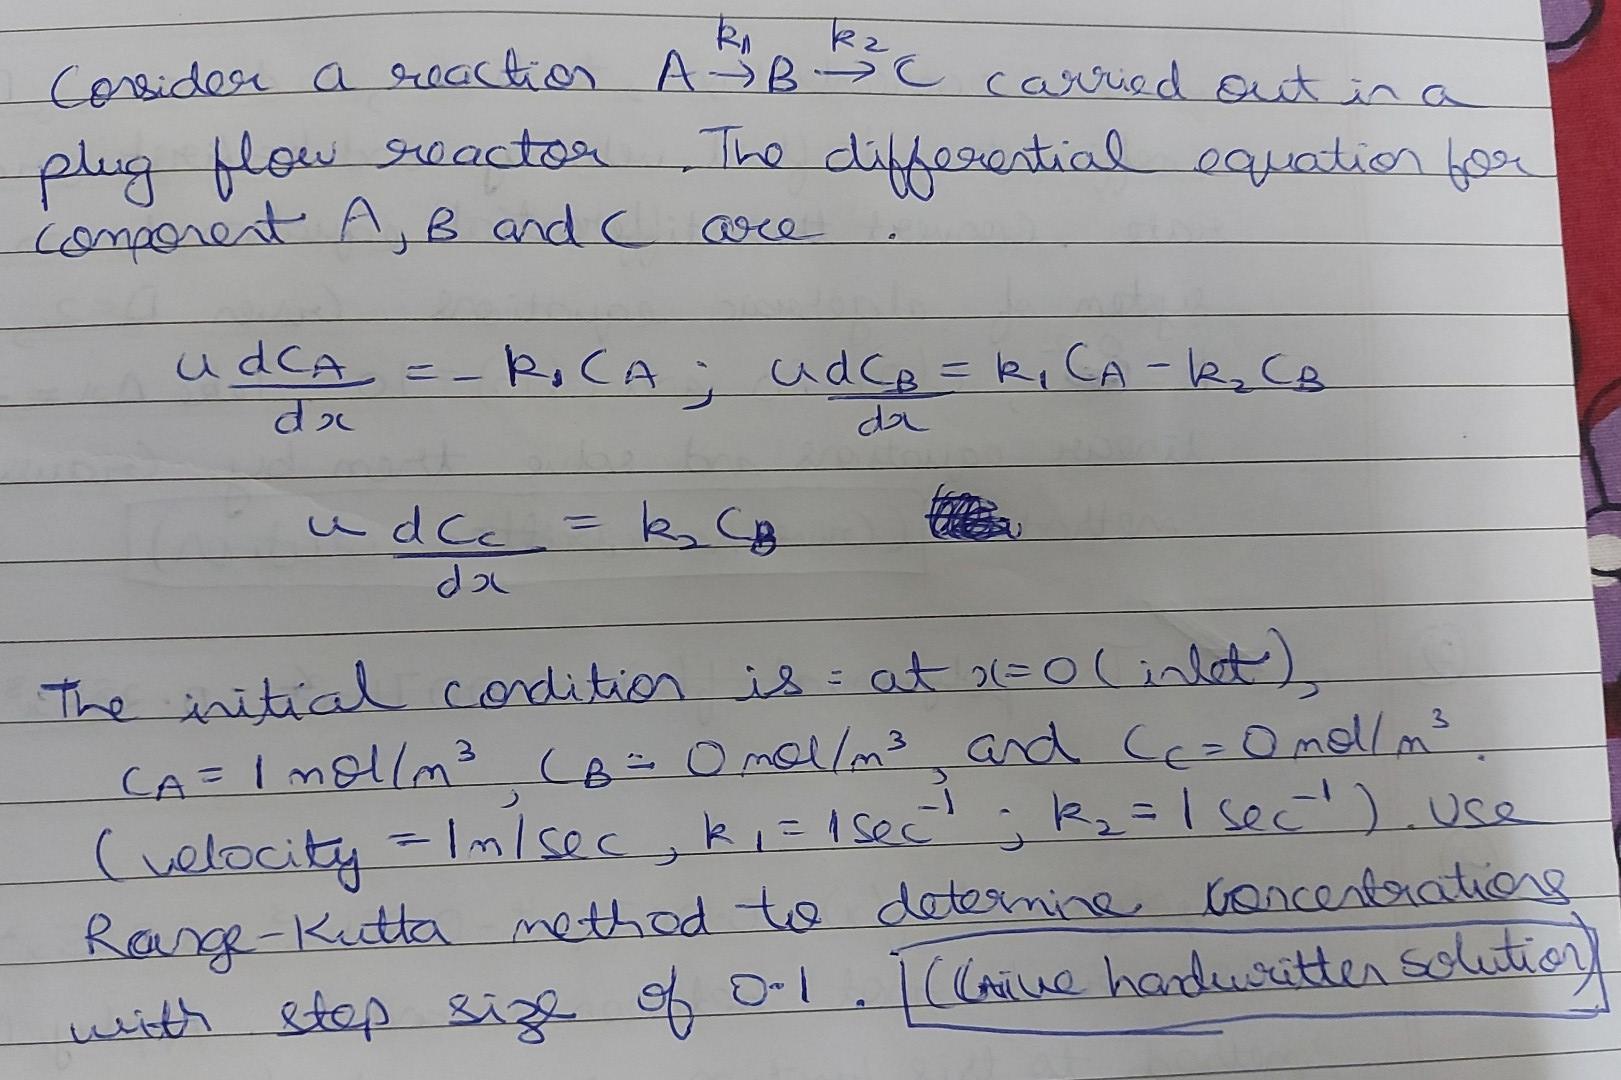 Consider a reaction A →k1 B →k2 C carried out in a
plug flow reactor. The differential equation for
component A, B and C are.
u dCA/dx = -k1 CA ; u dCB/dx = k1 CA - k2 CB
u dCc/dx = k2 CB
The initial condition is = at x=0 (inlet),
CA = 1 mol/m³, CB = 0 mol/m³, and Cc = 0 mol/m³.
(velocity = 1m/sec, k1 = 1 sec⁻¹ ; k2 = 1 sec⁻¹). Use
Range-Kutta method to determine concentrations
with step size of 0.1. [(Give handwritten solution)]